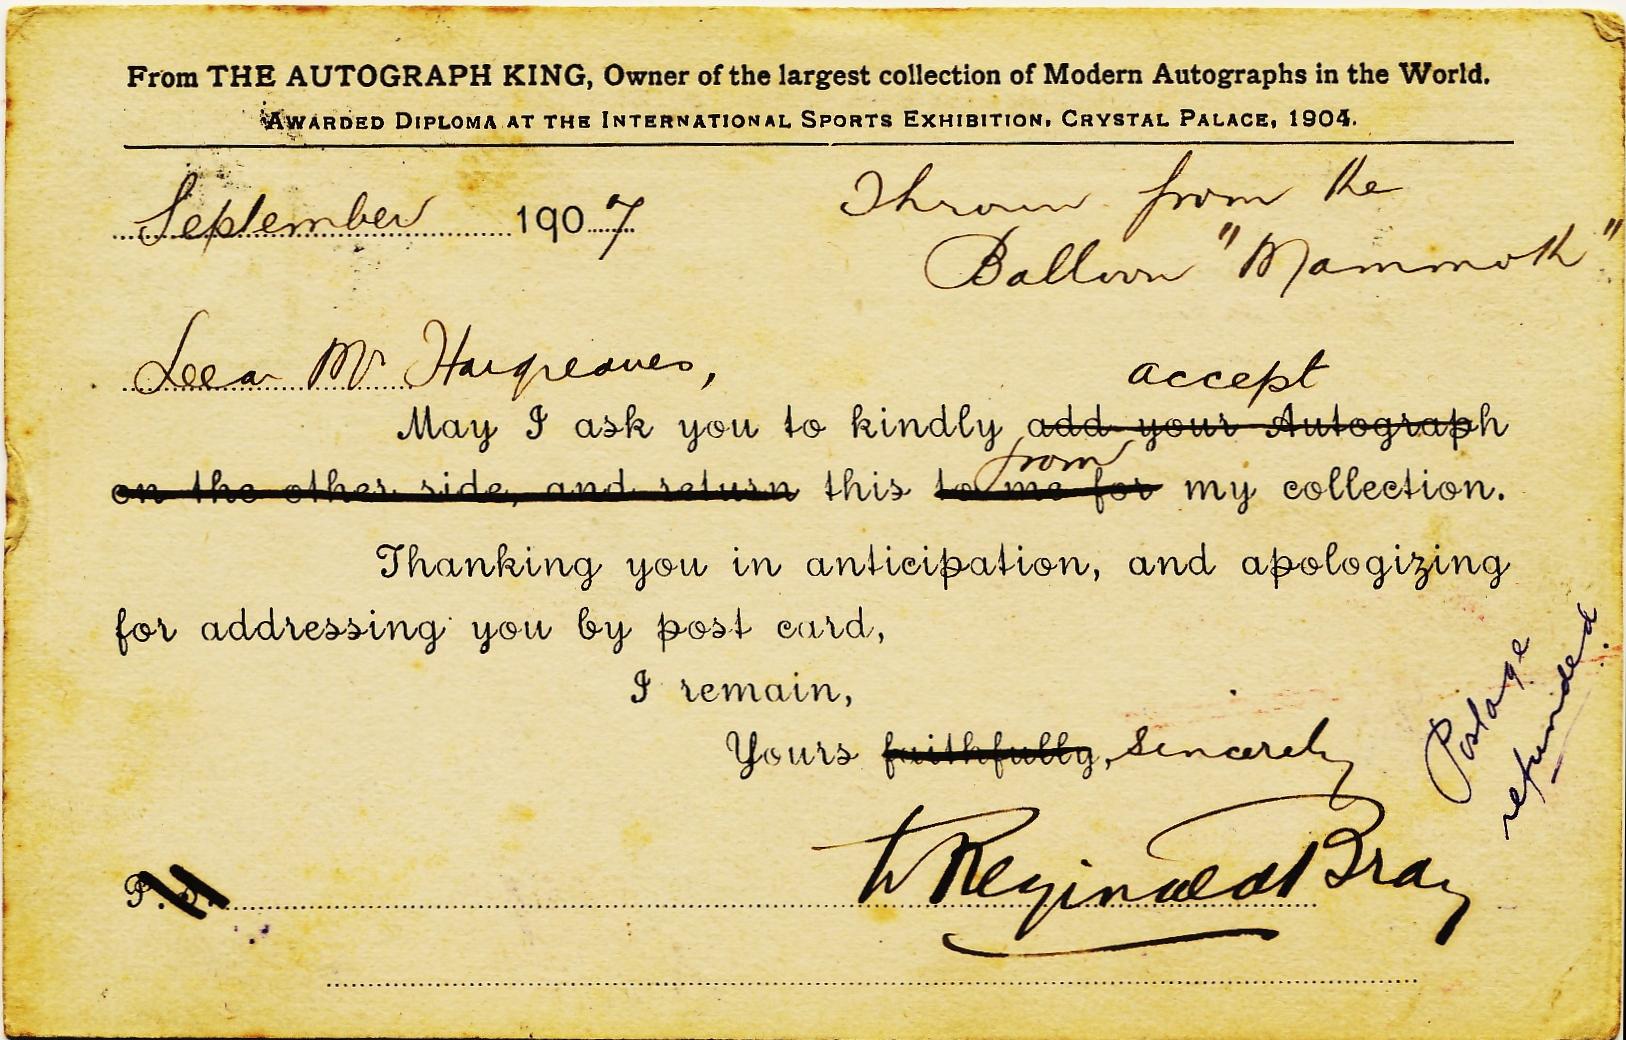 From THE AUTOGRAPH KING, Owner of the largest collection of Modern Autographs in the World.
AWARDED DIPLOMA AT THE INTERNATIONAL SPORTS EXHIBITION, CRYSTAL PALACE, 1904.
September 1907
Thrown from the
Balloon "Mammoth"
Dear Mr Hargreaves,
accept
May I ask you to kindly add your Autograph
from
on the other side, and return this to me for my collection.
Thanking you in anticipation, and apologizing
for addressing you by post card,
I remain,
Yours faithfully, sincerely
Postage
refunded.
W Reginald Bray
P.S.